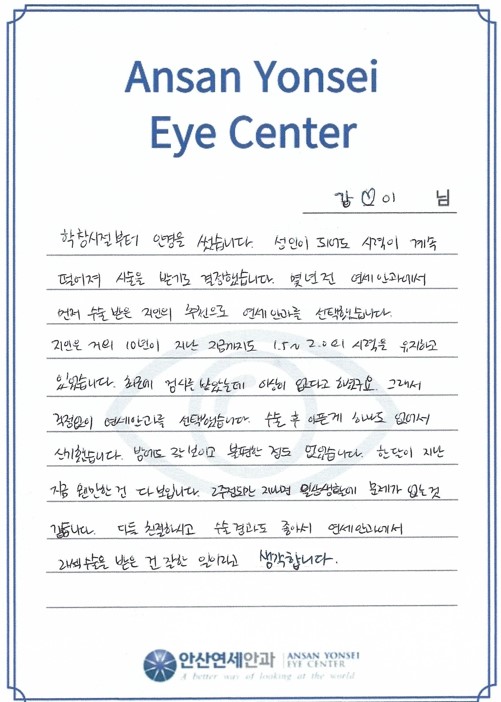 Ansan Yonsei
Eye Center
김♡이 님
학창시절부터 안경을 썼습니다. 성인이 되어도 시력이 계속
떨어져 시술을 받기로 결정했습니다. 몇년 전 연세안과에서
먼저 수술 받은 지인의 추천으로 연세안과를 선택했습니다.
지인은 거의 10년이 지난 지금까지도 1.5~2.0의 시력을 유지하고
있었습니다. 최근에 검사를 받았는데 이상이 없다고 하더군요. 그래서
걱정없이 연세안과를 선택했습니다. 수술 후 아픈게 하나도 없어서
신기했습니다. 밤에도 잘 보이고 불편한 점도 없었습니다. 한 달이 지난
지금 웬만한 건 다 보입니다. 2주정도만 지나면 일상생활에 문제가 없는 것
같습니다. 다들 친절하시고 수술 결과도 좋아서 연세안과에서
라섹수술을 받은 건 잘한 일이라고 생각합니다.
안산연세안과 ANSAN YONSEI
EYE CENTER
A better way of looking at the world